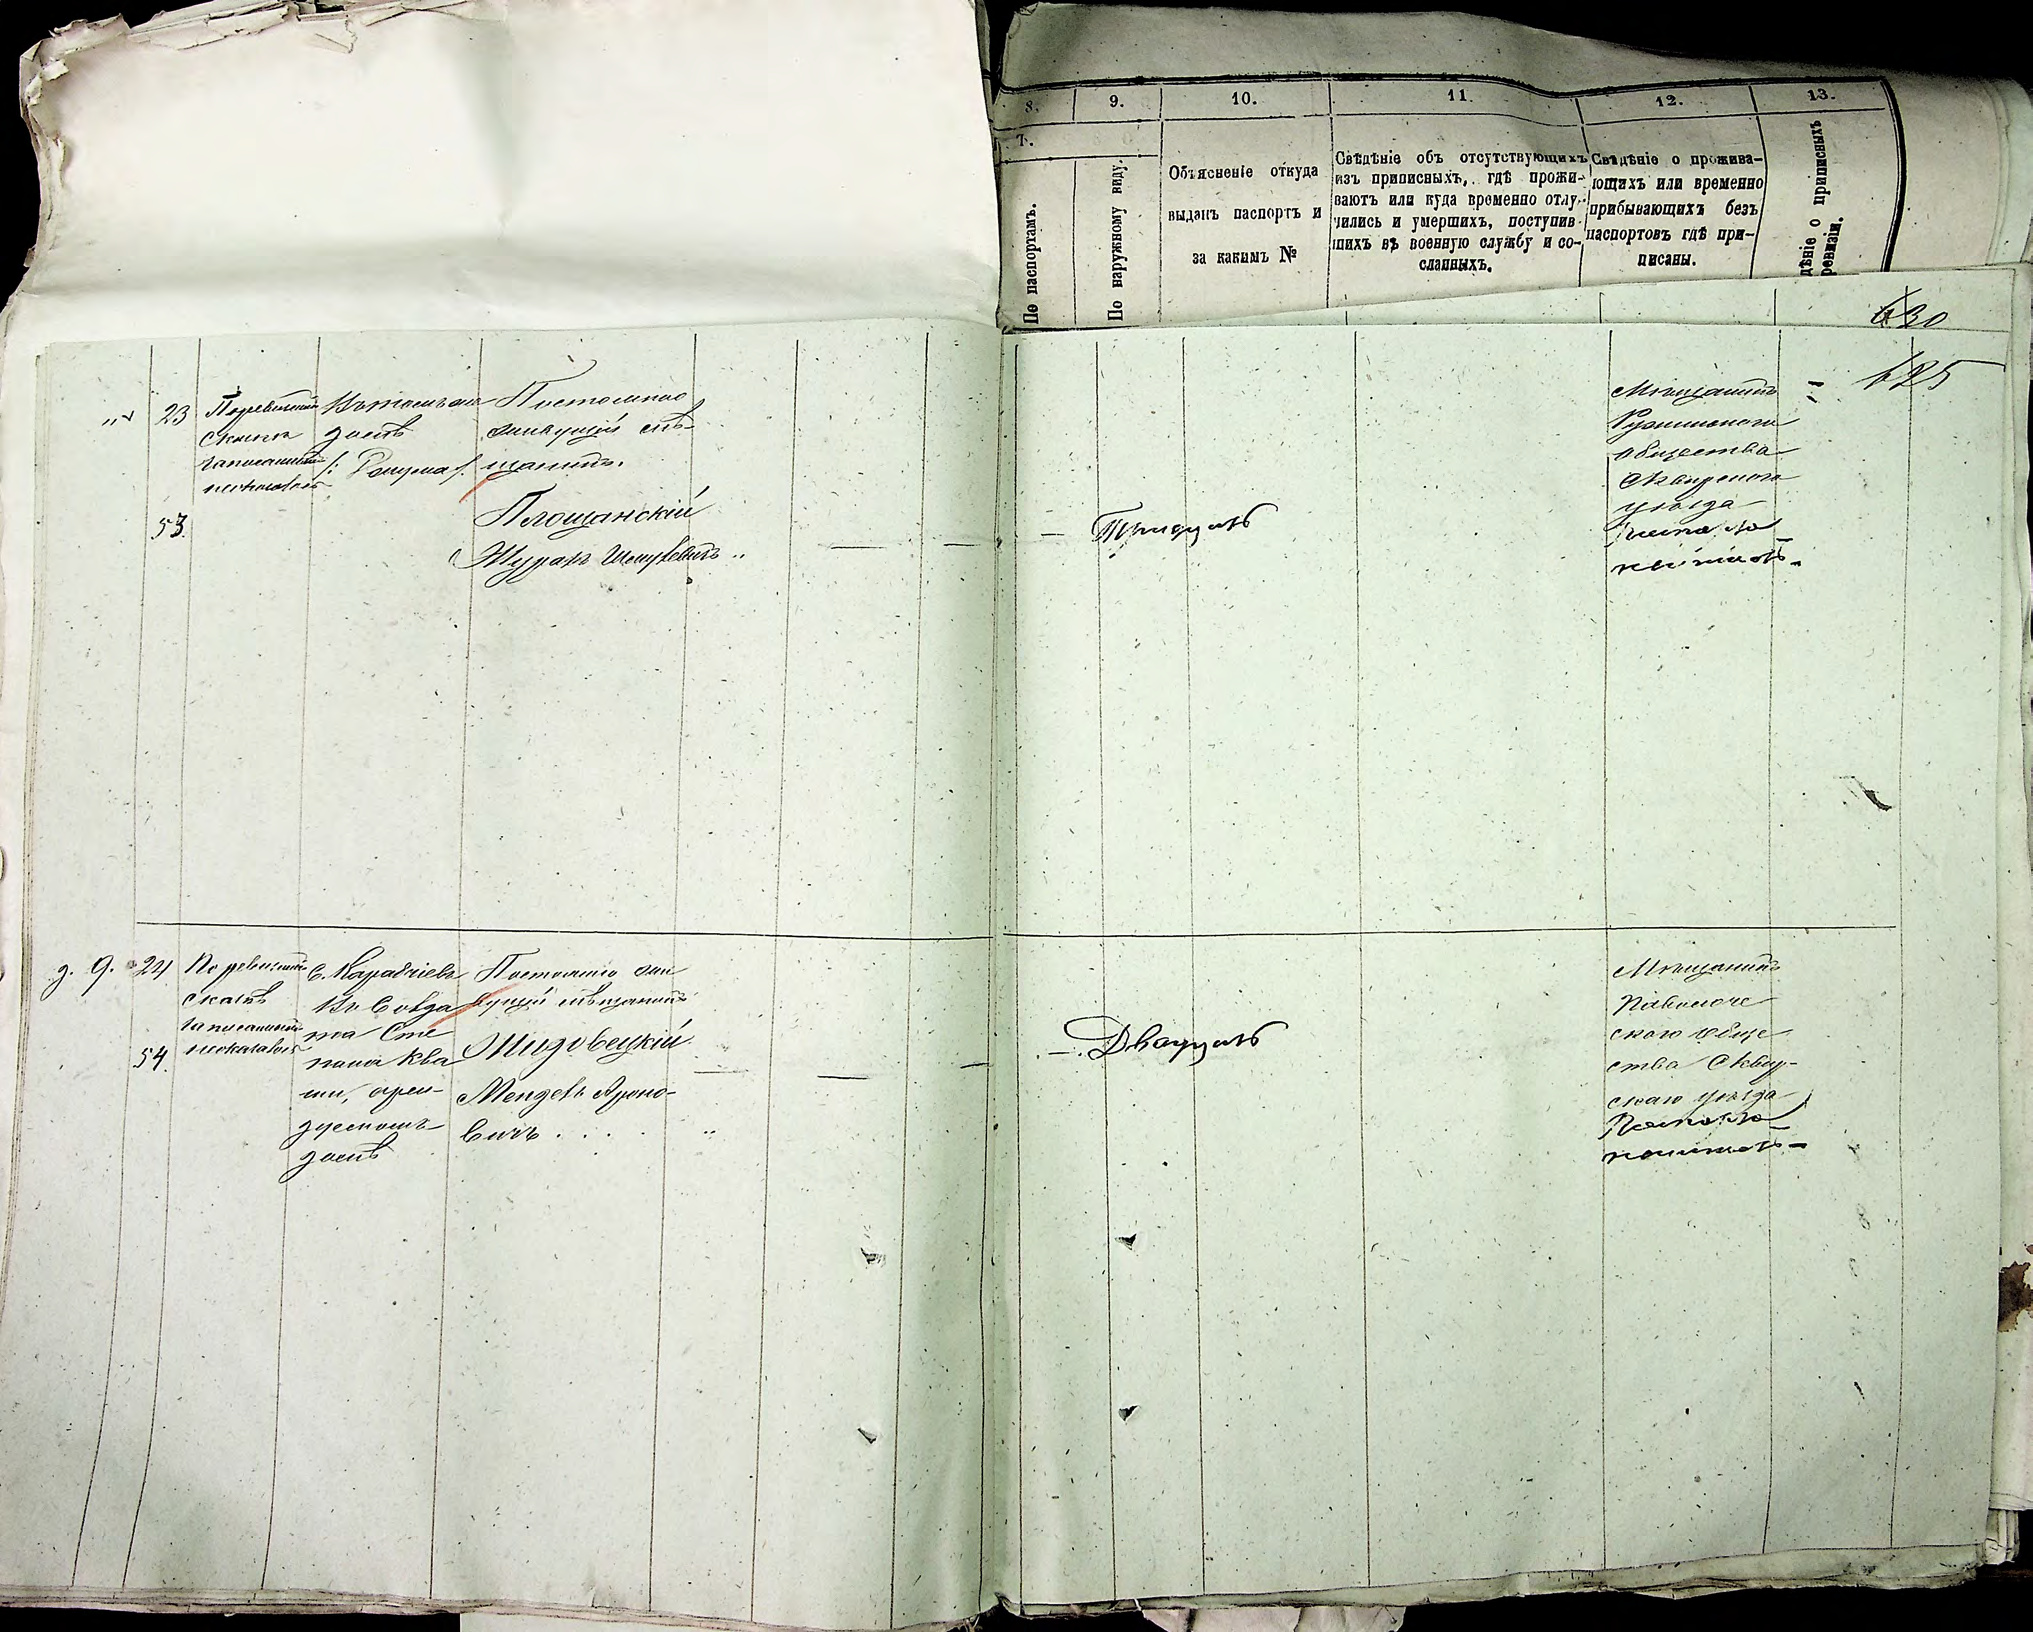 8. 9. 10. 11. 12. 13.
7.
По паспортамъ.
По наружному виду.
Объясненіе откуда
выданъ паспортъ и
за какимъ №
Свѣдѣніе объ отсутствующихъ
изъ приписныхъ, гдѣ прожи-
ваютъ или куда временно отлу-
чились и умершихъ, поступив
шихъ въ военную службу и со-
сланныхъ.
Свѣдѣніе о прожива-
ющихъ или временно
прибывающихъ безъ
паспортовъ гдѣ при-
писаны.
дѣніе о приписныхъ
ревизіи.
630
625
23
По ревизской
сказкѣ
записанный
неоказался
Въ томъ же
домѣ
53.
Постоянно
живущій мѣ-
щанинъ.
Площанскій
Тридцать
Мѣщанинъ
Ружинскаго
общества
Сквирскаго
уѣзда
д. 9. 24
По ревизской
сказкѣ
записанный
неоказался
54.
с. Карабчіевъ
Въ Солда
та Сте
пана Ква
ши, арен-
дуемомъ
домѣ
Постоянно жи
вущій мѣщанинъ
Жидовецкій
Мендель Ароно-
вичъ
Двадцать
Мѣщанинъ
Паволоче
скаго обще
ства Сквир-
скаго уѣзда